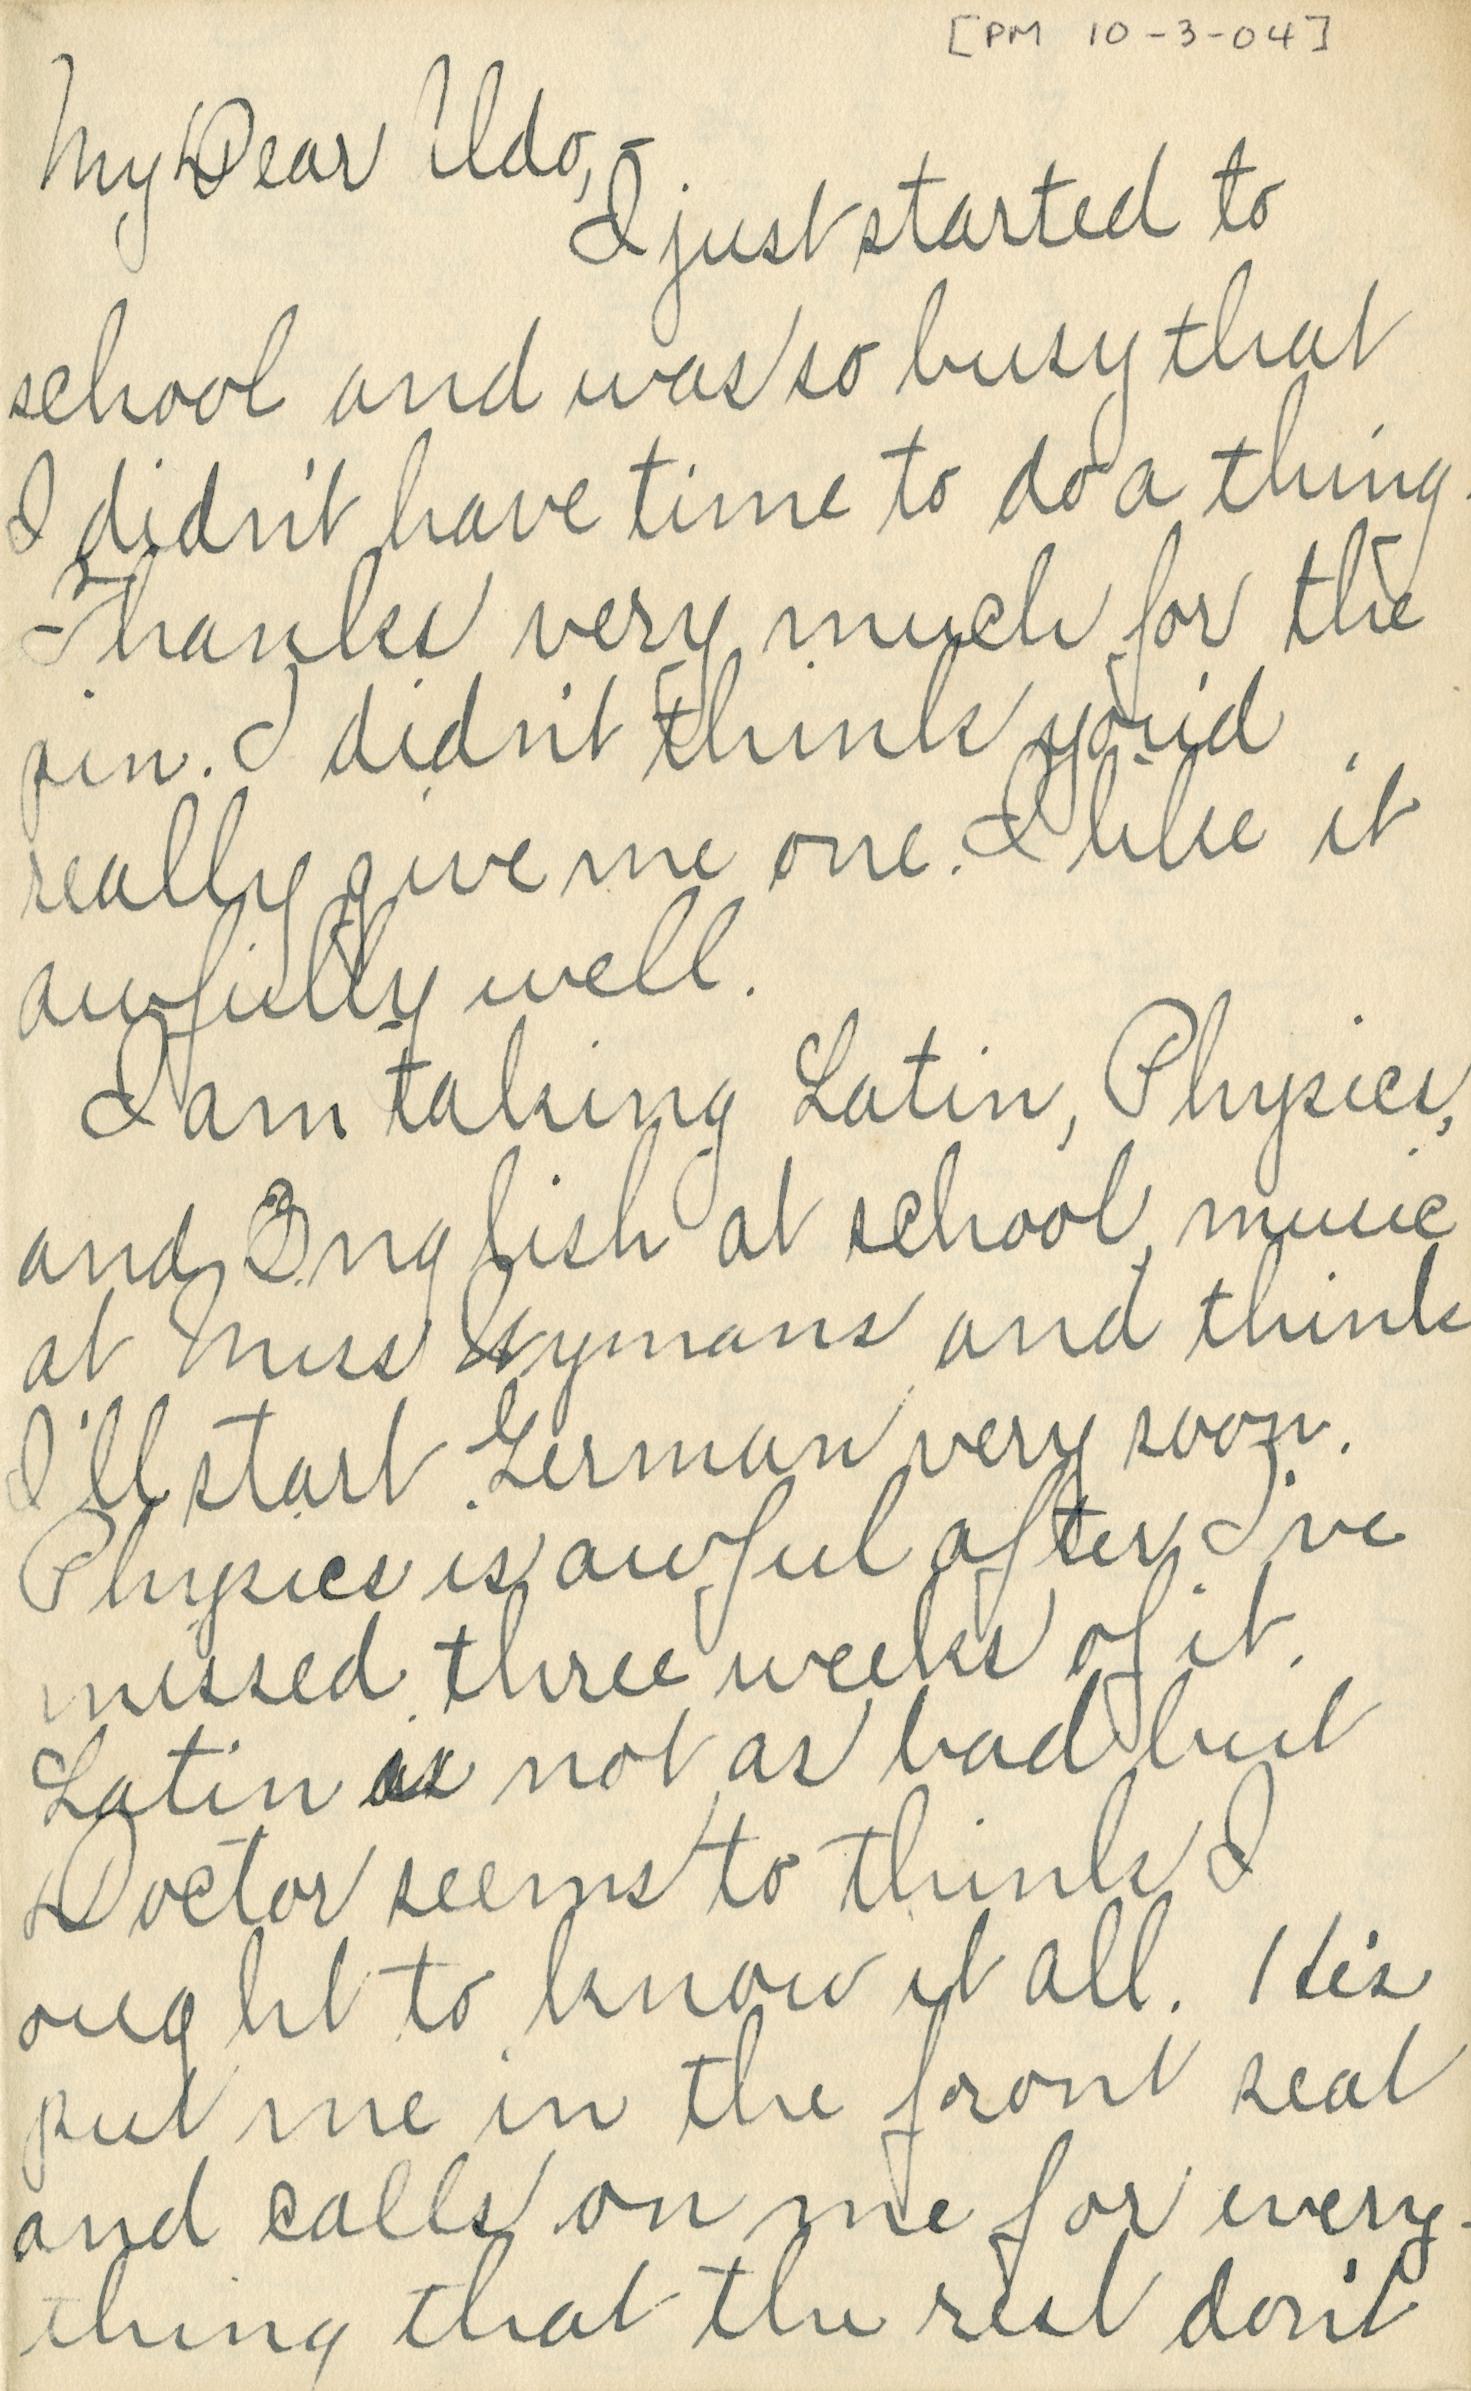 [PM 10-3-04]
My Dear Udo,-
I just started to
school and was so busy that
I didn't have time to do a thing.
Thanks very much for the
pin. I didn't think you'd
really give me one. I like it
awfully well.
I am taking Latin, Physics,
and English at school, music
at Miss Wymans and think
I'll start German very soon.
Physics is awful after I've
missed three weeks of it.
Latin is not as bad but
Doctor seems to think I
ought to know it all. He's
put me in the front seat
and calls on me for every-
thing that the rest don't